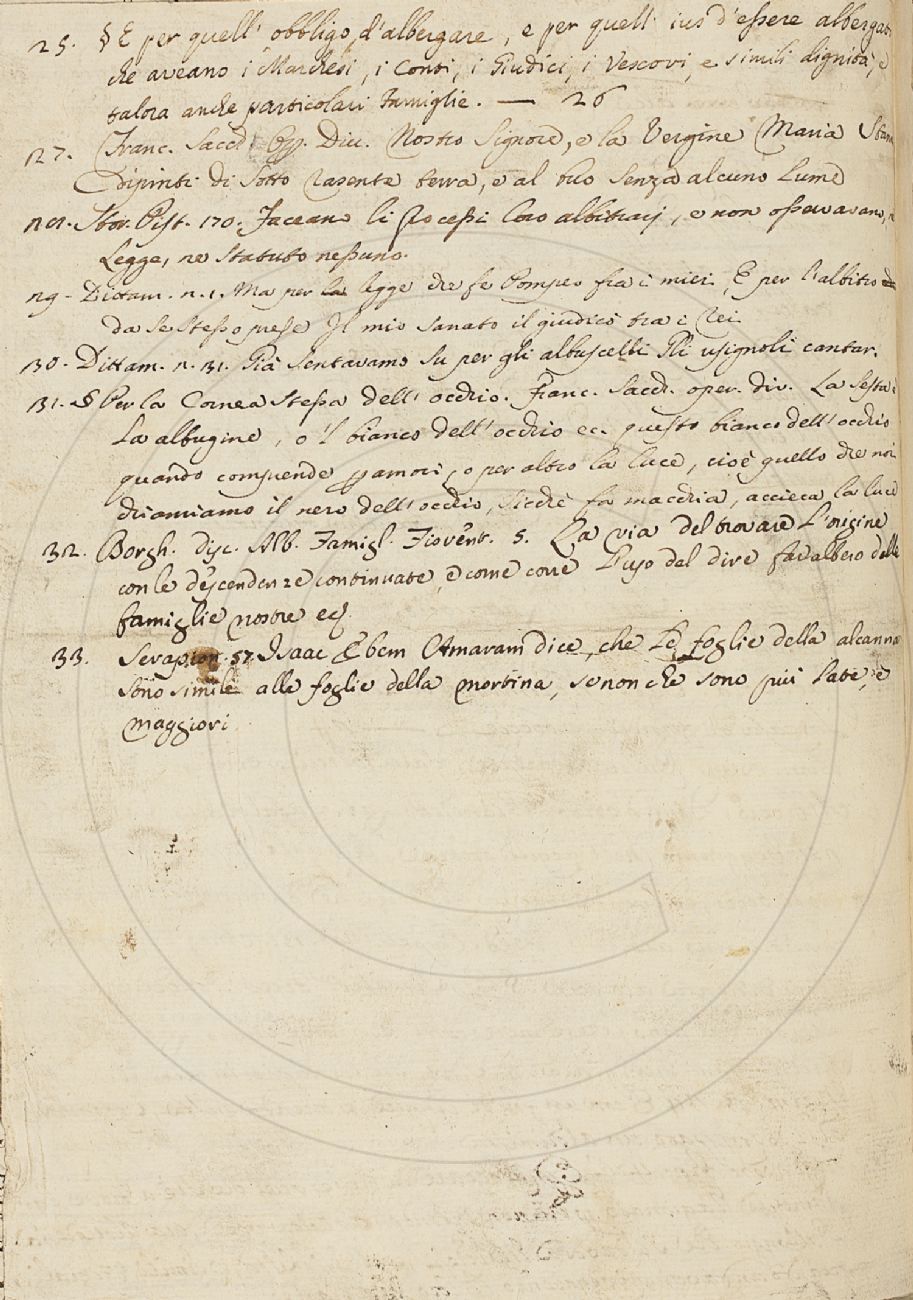 25. § E per quell' obbligo d'albergare, e per quell' ius d'essere albergati
che aveano i Marchesi, i Conti, i Giudici, i Vescovi, e simili dignità, e
talora anche particolari famiglie. — 26
127. Franc. Sacch. Op. Div. Nostro Signore, e la Vergine Maria
dipinti di sotto rasente terra, e al buo senza alcuno lume
Stor. Pist. 170. Faceano li processi loro albitrarj, e non osservavano,
legge, ne statuto nessuno.
Dittam. n. 1. Ma per la legge che fe Pompeo fra i miei, E per l'albitro
da se stesso prese Il mio sanato il giudicò tra i rei
130. Dittam. n. 31. Già sentavamo su per gli albuscelli Gli usignoli cantar.
131. § Per la Cornea stessa dell' occhio. Franc. Sacch. oper. div. La sesta è
La albugine, o 'l bianco dell' occhio ec. questo bianco dell' occhio
quando comprende omori, o per altro la luce, cioè quello che noi
chiamiamo il nero dell' occhio, sicchè fa macchia, accieca la luce
32. Borgh. Disc. Alb. Famigl. Fiorent. 5. La via del trovare l'origine
con le descendenze continuate, e come corre l'uso del dire far albero delle
famiglie nostre ec.
33. Serapion. 57. Isaac Ebem Amaram dice, che le foglie della alcanna
sono simile alle foglie della mortina, se non che sono più late, e
maggiori